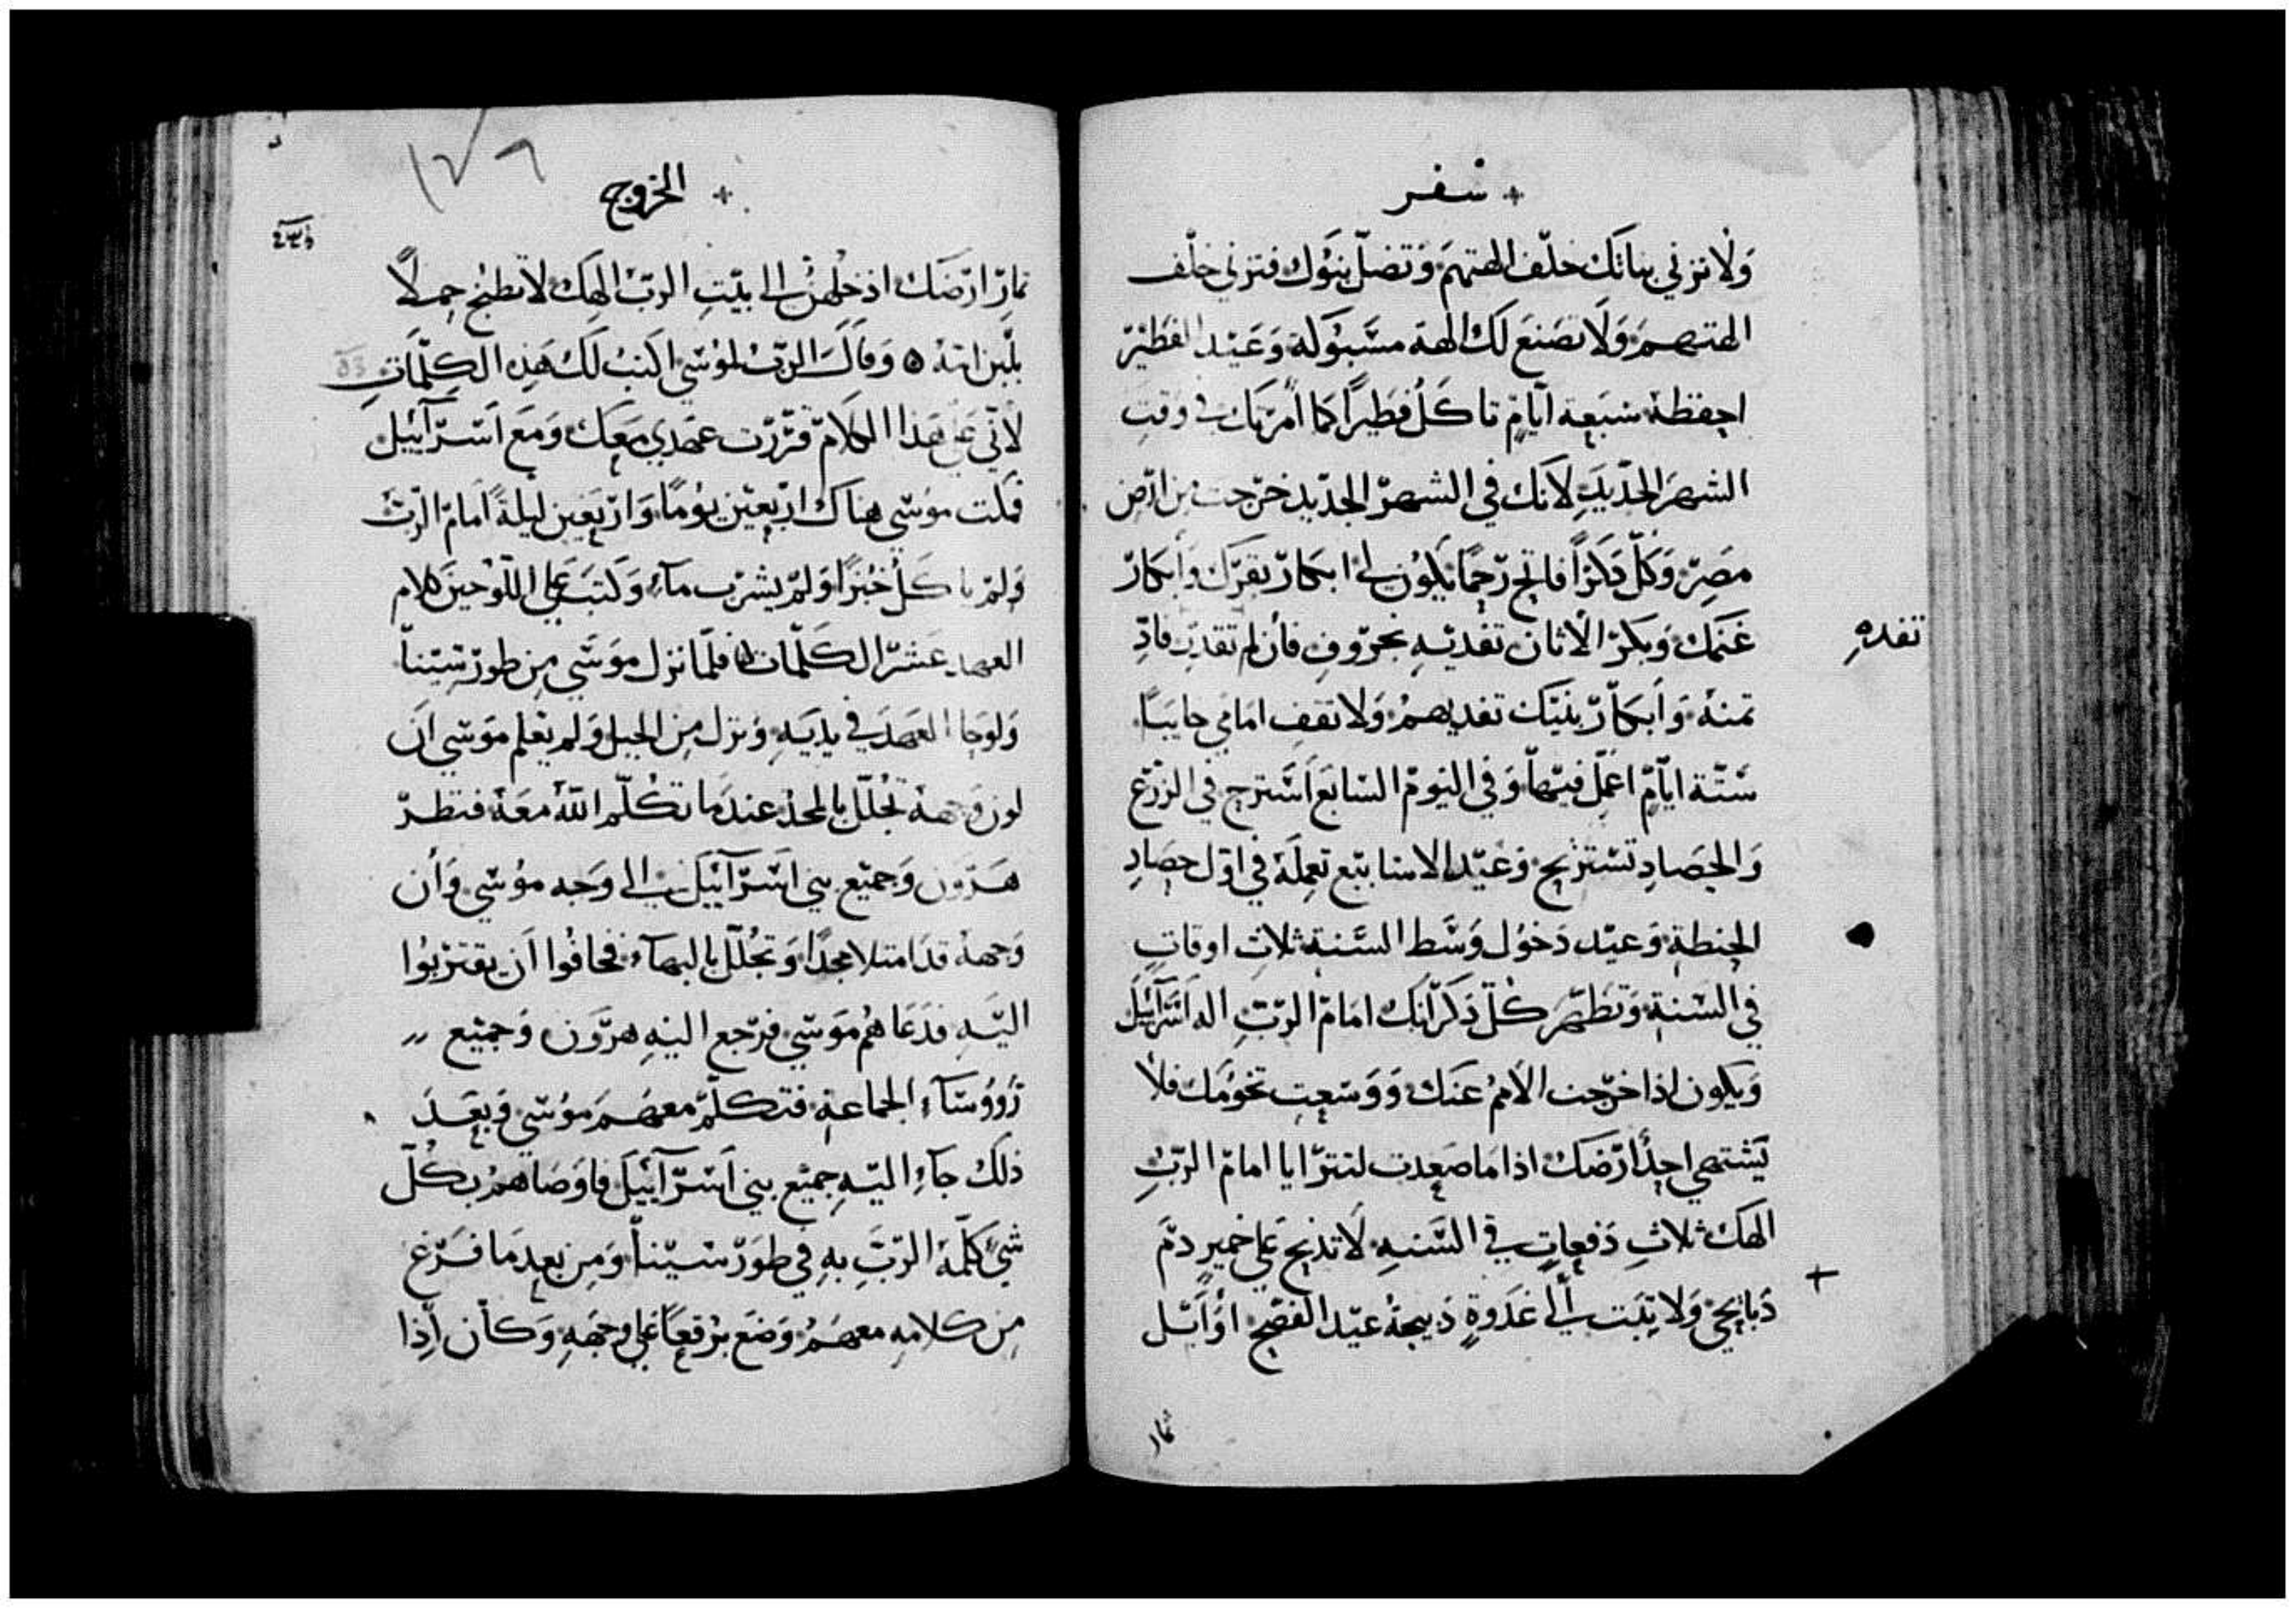 + سفر
وَلَا تزني بناتك خلف الهتهم وَتضلّ بنوك فتزني خلف
الهتهم وَلَا تصنع لك الهة مسبوكة وَعيد الفطير
احفظه سبعة ايام تاكل فطيراً كما امرتك في وقت
الشهر الجديد لانك في الشهر الجديد خرجت من ارض
مصر وَكلّ ذكراً فاتح رحمًا يكون لي ابكار بقرك وَأبكار
غنمك وَبكر الاتان تفديه بخروف فأن لم تفديه فادِّ
تفدهِ
ثمنه وَأبكار بنيك تفديهم وَلا تقف امامي خايبًا
ستة ايام اعمل فيها وَفي اليوم السابع استرح في الزرع
وَالحصاد تستريح وَعيد الاسابيع تعمله في اول حصاد
الحنطة وَعيد دخول وَسط السنة ثلاث اوقات
في السنة وَتظهر كلّ ذكرانك امام الرب اله اسرآئيل
وَيكون اذا خرجت الامم عنك وَوَسعت تخومك فلا
يشتهي احدٌ ارضك اذا ما صعدت لتترايا امام الرب
الهك ثلاث دفعات في السنه لا تذبح على خمير دم
+
ذبايحي وَلا تبت الى غدوةٍ ذبيحة عيد الفصح اوَايل
ثمار
١٧٦
+ الخروج
ثمار ارضك ادخلهن الى بيت الرب الهك لا تطبخ حملاً
بلبن امه ه وَقال الرب لموسى اكتب لك هذه الكلمات
لأنّي على هذا الكلام قررت عهدي معك وَمع اسرآئيل
فمكث موسى هناك اربعين يومًا وَاربعين ليلةً امام الرب
وَلم ياكل خبزًا وَلم يشرب مآء وَكتب على اللوحين كلام
العهد عشر الكلمات فلما نزل موسى من طور سينا
وَلوحا العهد في يديه وَنزل من الجبل وَلم يعلم موسى ان
لون وَجهه تجلّل بالمجد عندما تكلّم اللّه معه فنظر
هرون وَجميع بني اسرآئيل الى وَجه موسى وَأن
وَجهه قد امتلا مجدًا وَتجلّل بالبهآء فخافوا ان يقتربوا
اليه فدعاهم موسى فرجع اليه هرون وَجميع
رؤوسآء الجماعة فتكلّم معهم موسى وَبعد
ذلك جآء اليه جميع بني اسرآئيل فاوَصاهم بكلّ
شيٍ كلّمه الرب به في طور سينا وَمن بعد ما فرغ
من كلامه معهم وَضع برقعًا على وجهه وَكان إذا